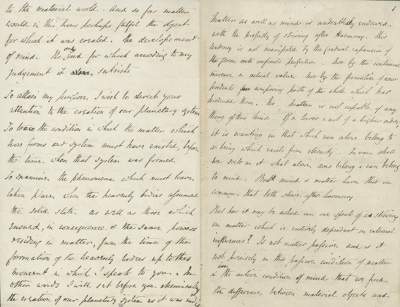 to the material world. And so far matter
could in this way perhaps fulfil the object
for which it was created. the development
of mind. the end for which according to my
judgement it alone subsists
To attain my purpose, I wish to direct your
attention to the creation of our planetary system
To trace the condition in which the matter which
now forms our system must have existed, before
the time, when that system was formed.
To examine the phenomena which must have
taken place, when the heavenly bodies assumed
the solid state. as well as those which
ensued, in consequence of the same process
residing in matter, from the time of the
formation of the heavenly bodies up to this
moment in which I speak to you. In
other words I will set before you
the creation of our planetary system as it was
1
matter as well as mind is undoubtedly endowed
with the property of striving after harmony. this
harmony is not manifested by the gradual expansion of
the germ into complete perfection. nor by the continuous
increase in actual value. nor by the formation of new
products per temporary parts of the whole which had
produced them. No. matter is not capable of any
thing of this kind. If a lower and of a higher order,
it is wanting in that which can alone belong to
a being which exists from eternity. In one which
can exist as it what alone, can belong to
to mind. But mind & matter have this in
common, that both strive after harmony
But how it may be asked can we speak of a striving
in matter which is entirely dependent on external
influences? Is not matter passive and is it
not precisely in this passive condition of matter
in the active condition of mind, that we find
the difference between material objects and